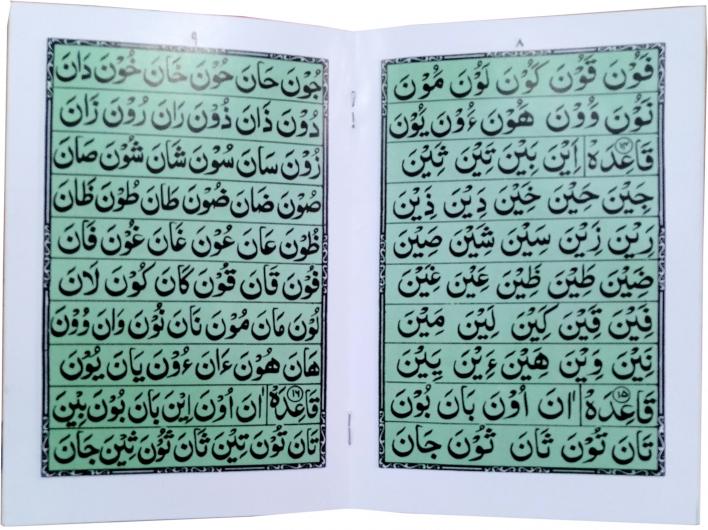 ٨
فَوْنَ قَوْنَ كَوْنَ لَوْنَ مَوْنَ
نَوْنَ وَوْنَ هَوْنَ ءَوْنَ يَوْنَ
قَاعِدَهْ ١٤ اِيْنَ بِيْنَ تِيْنَ ثِيْنَ
جِيْنَ حِيْنَ خِيْنَ دِيْنَ ذِيْنَ
رِيْنَ زِيْنَ سِيْنَ شِيْنَ صِيْنَ
ضِيْنَ طِيْنَ ظِيْنَ عِيْنَ غِيْنَ
فِيْنَ قِيْنَ كِيْنَ لِيْنَ مِيْنَ
نِيْنَ وِيْنَ هِيْنَ ءِيْنَ يِيْنَ
قَاعِدَهْ ١٥ اٰنَ اُوْنَ بَانَ بُوْنَ
تَانَ تُوْنَ ثَانَ ثُوْنَ جَانَ
٩
جُوْنَ حَانَ حُوْنَ خَانَ خُوْنَ دَانَ
دُوْنَ ذَانَ ذُوْنَ رَانَ رُوْنَ زَانَ
زُوْنَ سَانَ سُوْنَ شَانَ شُوْنَ صَانَ
صُوْنَ ضَانَ ضُوْنَ طَانَ طُوْنَ ظَانَ
ظُوْنَ عَانَ عُوْنَ غَانَ غُوْنَ فَانَ
فُوْنَ قَانَ قُوْنَ كَانَ كُوْنَ لَانَ
لُوْنَ مَانَ مُوْنَ نَانَ نُوْنَ وَانَ وُوْنَ
هَانَ هُوْنَ ءَانَ ءُوْنَ يَانَ يُوْنَ
قَاعِدَهْ ١٦ اٰنَ اُوْنَ اِيْنَ بَانَ بُوْنَ بِيْنَ
تَانَ تُوْنَ تِيْنَ ثَانَ ثُوْنَ ثِيْنَ جَانَ